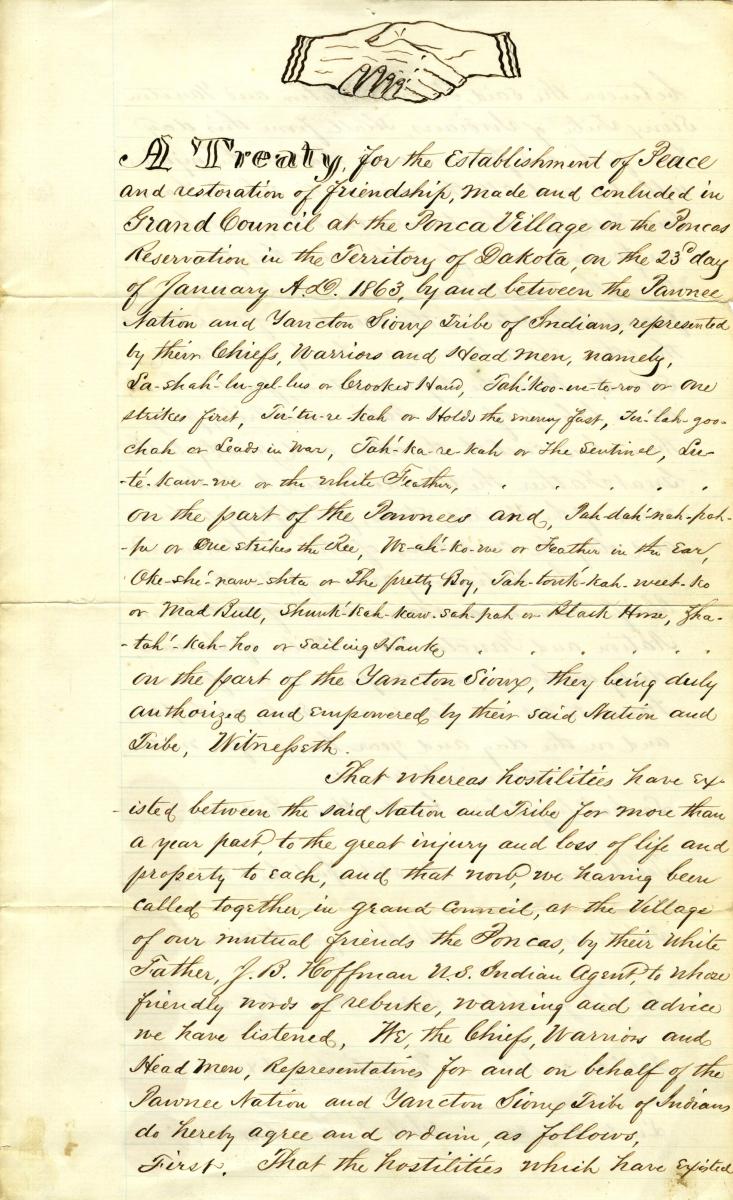 A Treaty, for the Establishment of Peace
and restoration of friendship, made and concluded in
Grand Council at the Ponca Village on the Poncas
Reservation in the Territory of Dakota, on the 23d day
of January A.D. 1863, by and between the Pawnee
Nation and Yancton Sioux Tribe of Indians, represented
by their Chiefs, Warriors and Head men, namely,
La-shah'-lu-gel-lus or Crooked Hand, Tah'-koo-un-te-roo or one
strikes first, Tu'-tu-re-kah or Holds the enemy fast, Tu'-lah-goo-
chah or Leads in War, Tah'-ka-re-kah or The Sentinel, Lu-
-té-kaw-we or the White Feather, . . . . .
on the part of the Pawnees and, Pah-dah'-nah-pah-
-pu or One strikes the Ree, We-ah'-ko-we or Feather in the Ear,
Oke-she'-naw-shta or The pretty Boy, Tah-tonk'-kah-weet-ko
or Mad Bull, Shunk'-kah-kaw-sah-pah or Black Horse, Zha-
-tah'-kah-hoo or Sailing Hawke . . . . . .
on the part of the Yancton Sioux, they being duly
authorized and empowered by their said Nation and
Tribe, Witnesseth.
That whereas hostilities have ex-
-isted between the said Nation and Tribe for more than
a year past, to the great injury and loss of life and
property to each, and that now, we having been
called together, in grand council, at the Village
of our mutual friends the Poncas, by their White
Father, J. B. Hoffman U.S. Indian Agent, to whose
friendly words of rebuke, warning and advice
we have listened, We, the Chiefs, Warriors and
Head Men, Representatives for and on behalf of the
Pawnee Nation and Yancton Sioux Tribe of Indians
do hereby agree and ordain, as follows,
First. That the hostilities which have existed